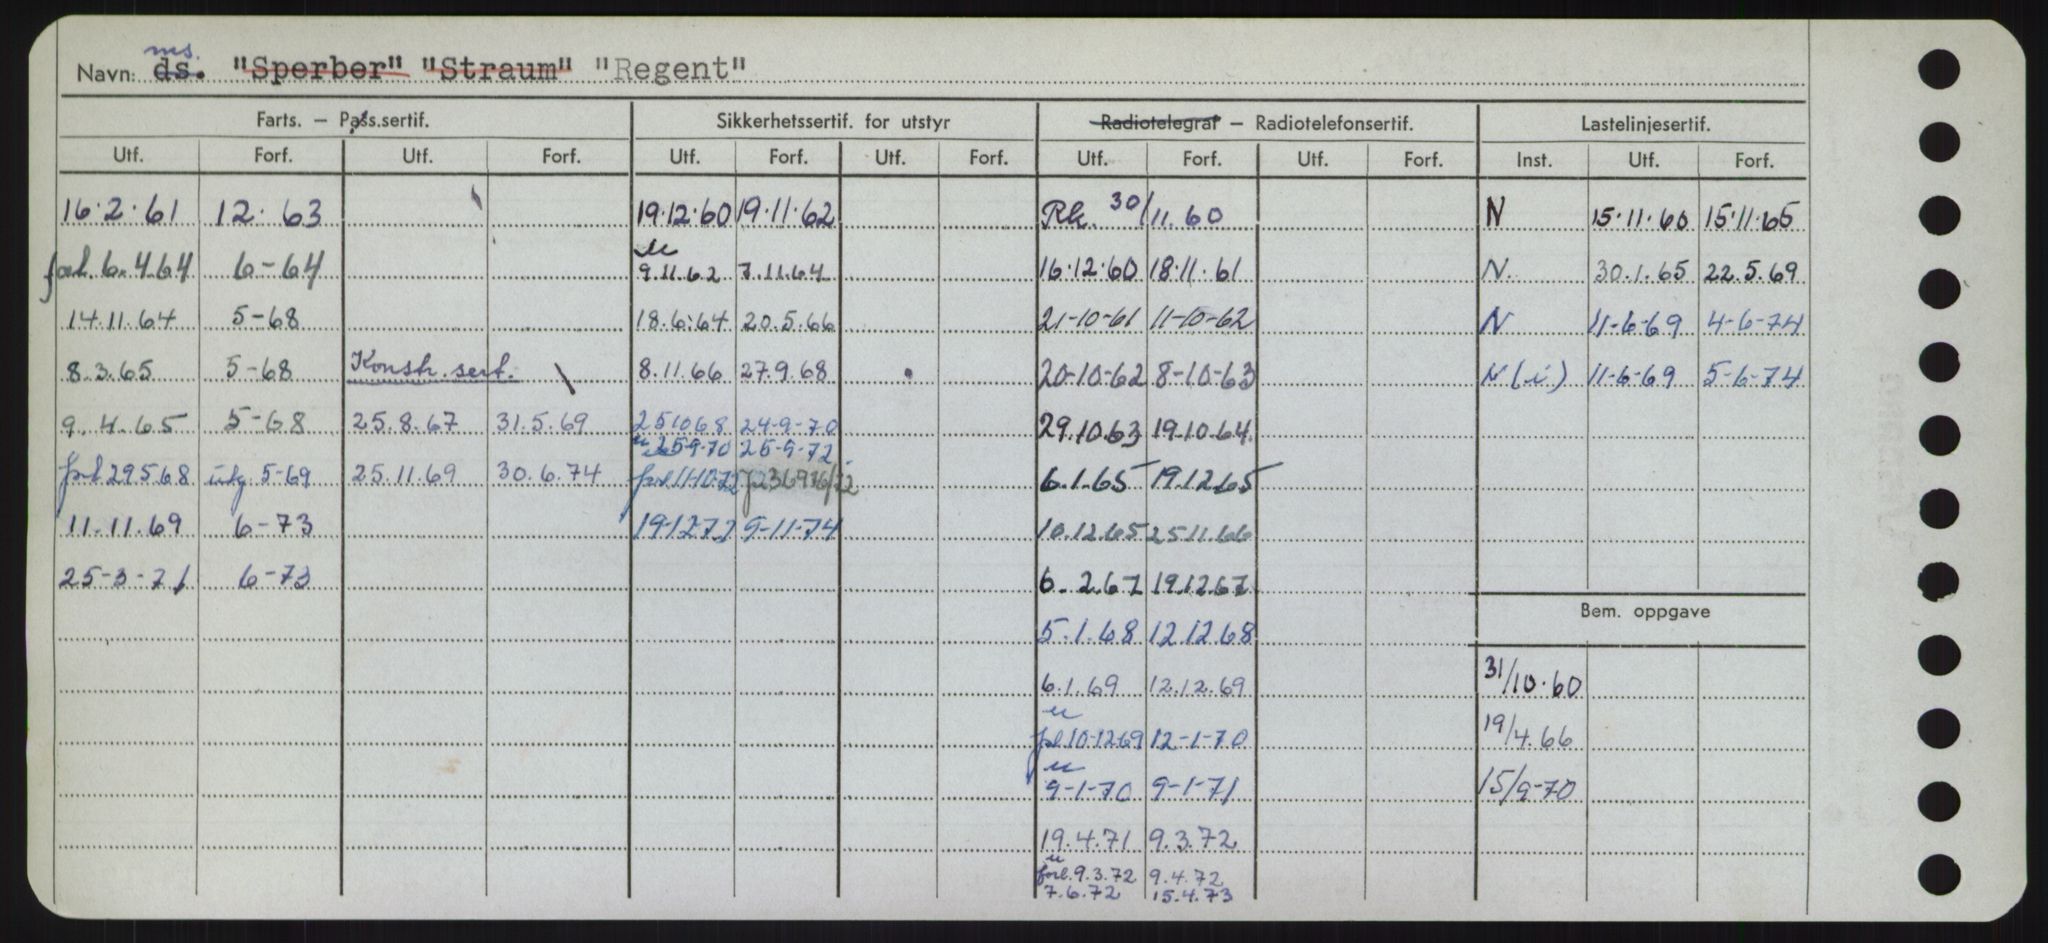 ms.
Navn: ds. "Sperber" "Straum" "Regent"
Farts. — Pass.sertif. Sikkerhetssertif. for utstyr Radiotelegraf — Radiotelefonsertif. Lastelinjesertif.
Utf. Forf. Utf. Forf. Utf. Forf. Utf. Forf. Utf. Forf. Utf. Forf. Inst. Utf. Forf.
16.2.61 12.63 19.12.60 19.11.62 Rk. 30/11.60 N 15.11.60 15.11.65
u
6.4.64 6-64 9.11.62 7.11.64 16.12.60 18.11.61 N. 30.1.65 22.5.69
14.11.64 5-68 18.6.64 20.5.66 21-10-61 11-10-62 N 11-6-69 4-6-74
8.3.65 5-68 Konstr. sert. 8.11.66 27.9.68 20-10-62 8-10-63 N (i) 11-6-69 5-6-74
9.4.65 5-68 25.8.67 31.5.69 251068 24-9-70 29.10.63 19.10.64.
u 25-9-70 25-9-72
29568 utg 5-69 25.11.69 30.6.74 11-10-72 6.1.65 19.12.65
11.11.69 6-73 19-12-72 9-11-74 10.12.65 25.11.66
25-3-71 6-73 6.2.67 19.12.67
Bem. oppgave
5.1.68 12.12.68
6.1.69 12.12.69 31/10.60
u
10-1269 12-1-70 19/4.66
u
9-1-70 9-1-71 15/9-70
19.4.71 9.3.72
u
forl. 9.3.72 9.4.72
7.6.72 15.4.73